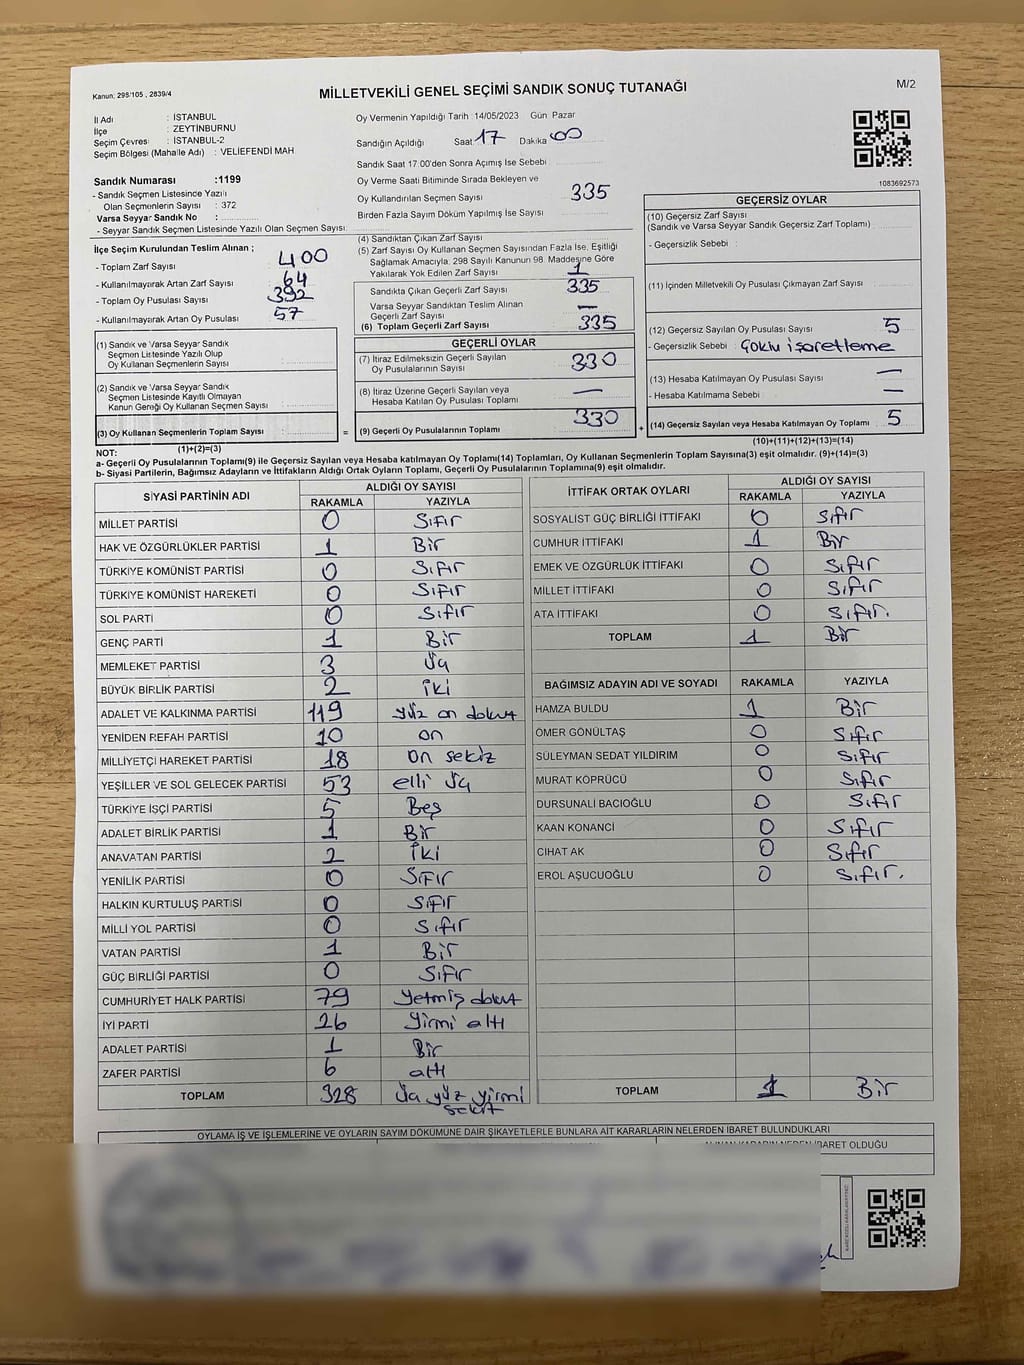 Kanun: 298/105 , 2839/4
MİLLETVEKİLİ GENEL SEÇİMİ SANDIK SONUÇ TUTANAĞI
M/2
İl Adı : İSTANBUL
İlçe : ZEYTİNBURNU
Seçim Çevresi : İSTANBUL-2
Seçim Bölgesi (Mahalle Adı) : VELİEFENDİ MAH
Sandık Numarası :1199
- Sandık Seçmen Listesinde Yazılı
Olan Seçmenlerin Sayısı : 372
Varsa Seyyar Sandık No :
- Seyyar Sandık Seçmen Listesinde Yazılı Olan Seçmen Sayısı:
Oy Vermenin Yapıldığı Tarih :14/05/2023 Gün Pazar
Sandığın Açıldığı Saat 17 Dakika 00
Sandık Saat 17:00'den Sonra Açımış İse Sebebi
Oy Verme Saati Bitiminde Sırada Bekleyen ve
Oy Kullandırılan Seçmen Sayısı 335
Birden Fazla Sayım Döküm Yapılmış İse Sayısı
1083692573
İlçe Seçim Kurulundan Teslim Alınan ;
- Toplam Zarf Sayısı 400
- Kullanılmayarak Artan Zarf Sayısı 64
- Toplam Oy Pusulası Sayısı 392
- Kullanılmayarak Artan Oy Pusulası 57
(1) Sandık ve Varsa Seyyar Sandık
Seçmen Listesinde Yazılı Olup
Oy Kullanan Seçmenlerin Sayısı
(2) Sandık ve Varsa Seyyar Sandık
Seçmen Listesinde Kayıtlı Olmayan
Kanun Gereği Oy Kullanan Seçmen Sayısı
(3) Oy Kullanan Seçmenlerin Toplam Sayısı
(1)+(2)=(3)
(4) Sandıktan Çıkan Zarf Sayısı
(5) Zarf Sayısı Oy Kullanan Seçmen Sayısından Fazla İse, Eşitliği
Sağlamak Amacıyla, 298 Sayılı Kanunun 98. Maddesine Göre
Yakılarak Yok Edilen Zarf Sayısı 1
Sandıkta Çıkan Geçerli Zarf Sayısı 335
Varsa Seyyar Sandıktan Teslim Alınan
Geçerli Zarf Sayısı —
(6) Toplam Geçerli Zarf Sayısı 335
GEÇERLİ OYLAR
(7) İtiraz Edilmeksizin Geçerli Sayılan
Oy Pusulalarının Sayısı 330
(8) İtiraz Üzerine Geçerli Sayılan veya
Hesaba Katılan Oy Pusulası Toplamı —
= (9) Geçerli Oy Pusulalarının Toplamı 330 +
GEÇERSİZ OYLAR
(10) Geçersiz Zarf Sayısı
(Sandık ve Varsa Seyyar Sandık Geçersiz Zarf Toplamı)
- Geçersizlik Sebebi :
(11) İçinden Milletvekili Oy Pusulası Çıkmayan Zarf Sayısı
(12) Geçersiz Sayılan Oy Pusulası Sayısı 5
- Geçersizlik Sebebi : Çoklu işaretleme
(13) Hesaba Katılmayan Oy Pusulası Sayısı —
- Hesaba Katılmama Sebebi —
(14) Geçersiz Sayılan veya Hesaba Katılmayan Oy Toplamı 5
(10)+(11)+(12)+(13)=(14)
NOT:
a- Geçerli Oy Pusulalarının Toplamı(9) ile Geçersiz Sayılan veya Hesaba katılmayan Oy Toplamı(14) Toplamları, Oy Kullanan Seçmenlerin Toplam Sayısına(3) eşit olmalıdır. (9)+(14)=(3)
b- Siyasi Partilerin, Bağımsız Adayların ve İttifakların Aldığı Ortak Oyların Toplamı, Geçerli Oy Pusulalarının Toplamına(9) eşit olmalıdır.
SİYASİ PARTİNİN ADI ALDIĞI OY SAYISI
RAKAMLA YAZIYLA
MİLLET PARTİSİ 0 Sıfır
HAK VE ÖZGÜRLÜKLER PARTİSİ 1 Bir
TÜRKİYE KOMÜNİST PARTİSİ 0 Sıfır
TÜRKİYE KOMÜNİST HAREKETİ 0 Sıfır
SOL PARTİ 0 Sıfır
GENÇ PARTİ 1 Bir
MEMLEKET PARTİSİ 3 Üç
BÜYÜK BİRLİK PARTİSİ 2 İki
ADALET VE KALKINMA PARTİSİ 119 yüz on dokuz
YENİDEN REFAH PARTİSİ 10 on
MİLLİYETÇİ HAREKET PARTİSİ 18 on sekiz
YEŞİLLER VE SOL GELECEK PARTİSİ 53 elli üç
TÜRKİYE İŞÇİ PARTİSİ 5 Beş
ADALET BİRLİK PARTİSİ 1 Bir
ANAVATAN PARTİSİ 2 İki
YENİLİK PARTİSİ 0 Sıfır
HALKIN KURTULUŞ PARTİSİ 0 Sıfır
MİLLİ YOL PARTİSİ 0 Sıfır
VATAN PARTİSİ 1 Bir
GÜÇ BİRLİĞİ PARTİSİ 0 Sıfır
CUMHURİYET HALK PARTİSİ 79 Yetmiş dokuz
İYİ PARTİ 26 Yirmi altı
ADALET PARTİSİ 1 Bir
ZAFER PARTİSİ 6 altı
TOPLAM 328 Üç yüz yirmi
sekiz
İTTİFAK ORTAK OYLARI ALDIĞI OY SAYISI
RAKAMLA YAZIYLA
SOSYALİST GÜÇ BİRLİĞİ İTTİFAKI 0 Sıfır
CUMHUR İTTİFAKI 1 Bir
EMEK VE ÖZGÜRLÜK İTTİFAKI 0 Sıfır
MİLLET İTTİFAKI 0 Sıfır
ATA İTTİFAKI 0 Sıfır.
TOPLAM 1 Bir
BAĞIMSIZ ADAYIN ADI VE SOYADI RAKAMLA YAZIYLA
HAMZA BULDU 1 Bir
ÖMER GÖNÜLTAŞ 0 Sıfır
SÜLEYMAN SEDAT YILDIRIM 0 Sıfır
MURAT KÖPRÜCÜ 0 Sıfır
DURSUNALİ BACIOĞLU 0 Sıfır
KAAN KONANCİ 0 Sıfır
CİHAT AK 0 Sıfır
EROL AŞUCUOĞLU 0 Sıfır.
TOPLAM 1 Bir
OYLAMA İŞ VE İŞLEMLERİNE VE OYLARIN SAYIM DÖKÜMÜNE DAİR ŞİKAYETLERLE BUNLARA AİT KARARLARIN NELERDEN İBARET BULUNDUKLARI
ALINAN KARARIN NEDEN İBARET OLDUĞU